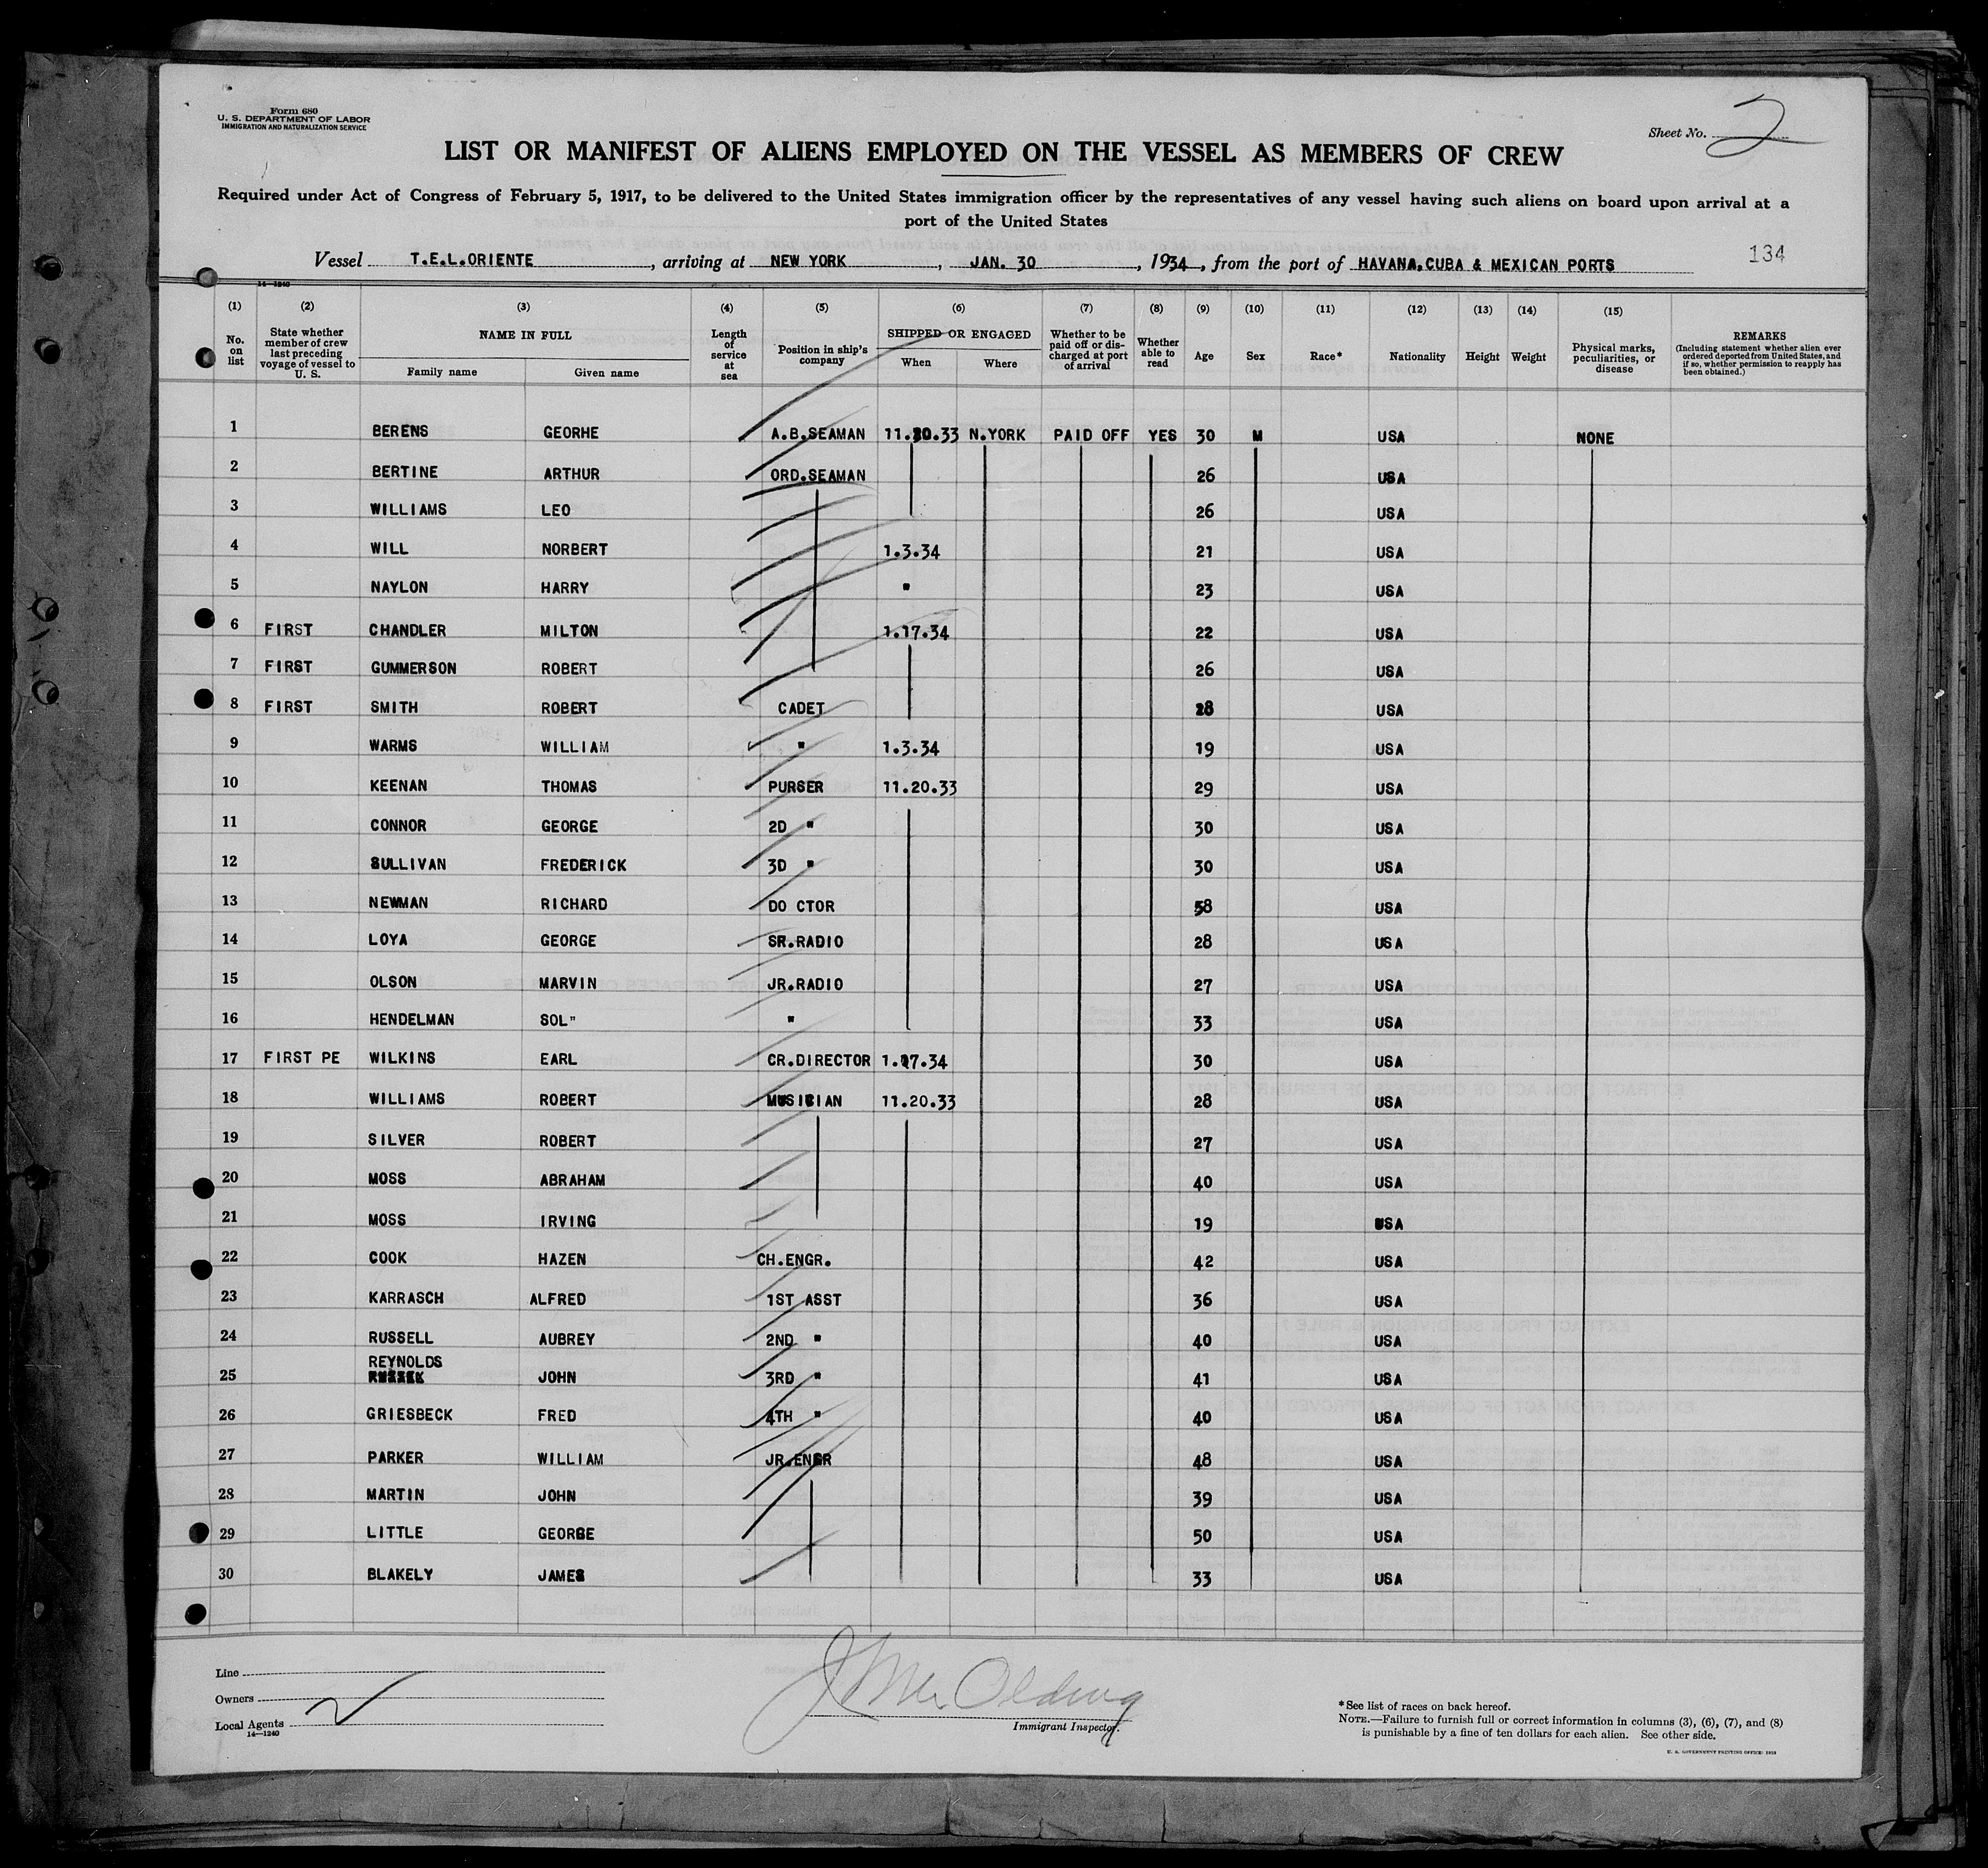 Form 680
U. S. DEPARTMENT OF LABOR
IMMIGRATION AND NATURALIZATION SERVICE
Sheet No. 2
LIST OR MANIFEST OF ALIENS EMPLOYED ON THE VESSEL AS MEMBERS OF CREW
Required under Act of Congress of February 5, 1917, to be delivered to the United States immigration officer by the representatives of any vessel having such aliens on board upon arrival at a
port of the United States
Vessel T.E.L.ORIENTE, arriving at NEW YORK, JAN. 30, 1934, from the port of HAVANA,CUBA & MEXICAN PORTS
134
14—1240
(1) (2) (3) (4) (5) (6) (7) (8) (9) (10) (11) (12) (13) (14) (15)
No. on list
State whether member of crew last preceding voyage of vessel to U. S.
NAME IN FULL
Family name
Given name
Length of service at sea
Position in ship's company
SHIPPED OR ENGAGED
When
Where
Whether to be paid off or discharged at port of arrival
Whether able to read
Age
Sex
Race*
Nationality
Height
Weight
Physical marks, peculiarities, or disease
REMARKS
(Including statement whether alien ever ordered deported from United States, and if so, whether permission to reapply has been obtained.)
1 BERENS GEORHE A.B.SEAMAN 11.20.33 N.YORK PAID OFF YES 30 M USA NONE
2 BERTINE ARTHUR ORD.SEAMAN 26 USA
3 WILLIAMS LEO 26 USA
4 WILL NORBERT 1.3.34 21 USA
5 NAYLON HARRY " 23 USA
6 FIRST CHANDLER MILTON 1.17.34 22 USA
7 FIRST GUMMERSON ROBERT 26 USA
8 FIRST SMITH ROBERT CADET 28 USA
9 WARMS WILLIAM " 1.3.34 19 USA
10 KEENAN THOMAS PURSER 11.20.33 29 USA
11 CONNOR GEORGE 2D " 30 USA
12 SULLIVAN FREDERICK 3D " 30 USA
13 NEWMAN RICHARD DO CTOR 58 USA
14 LOYA GEORGE SR.RADIO 28 USA
15 OLSON MARVIN JR.RADIO 27 USA
16 HENDELMAN SOL" " 33 USA
17 FIRST PE WILKINS EARL CR.DIRECTOR 1.17.34 30 USA
18 WILLIAMS ROBERT MUSICIAN 11.20.33 28 USA
19 SILVER ROBERT 27 USA
20 MOSS ABRAHAM 40 USA
21 MOSS IRVING 19 USA
22 COOK HAZEN CH.ENGR. 42 USA
23 KARRASCH ALFRED 1ST ASST 36 USA
24 RUSSELL AUBREY 2ND " 40 USA
25 REYNOLDS JOHN 3RD " 41 USA
26 GRIESBECK FRED 4TH " 40 USA
27 PARKER WILLIAM JR.ENGR 48 USA
28 MARTIN JOHN 39 USA
29 LITTLE GEORGE 50 USA
30 BLAKELY JAMES 33 USA
Line
Owners
Local Agents
14—1240
Immigrant Inspector.
*See list of races on back hereof.
NOTE.—Failure to furnish full or correct information in columns (3), (6), (7), and (8)
is punishable by a fine of ten dollars for each alien. See other side.
U. S. GOVERNMENT PRINTING OFFICE